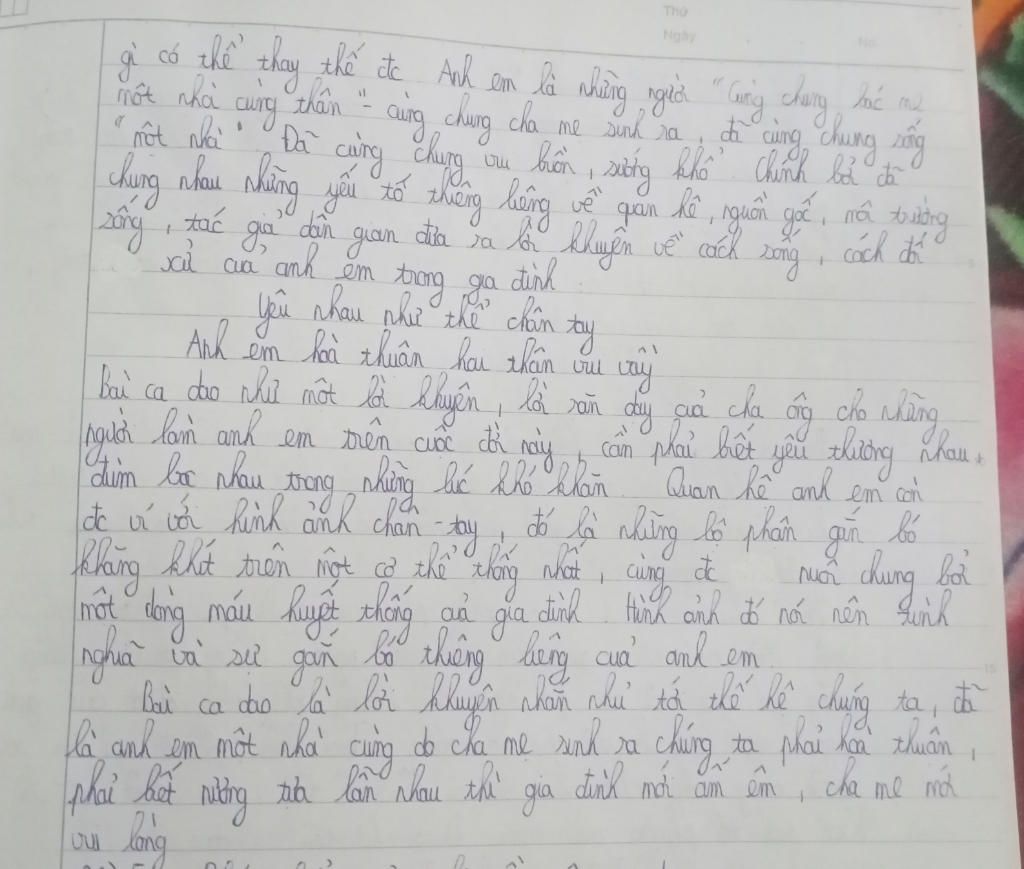 Thứ
Ngày
No.
gì có thể thay thế đc Anh em là những người "Cùng chung bác mẹ
một nhà cùng thân" - cùng chung cha mẹ sinh ra, đã cùng chung sống
"một nhà" Đã cùng chung vui buồn, sướng khổ. Chính bởi đã
chung nhau những yếu tố thiêng liêng về quan hệ, nguồn gốc, môi trường
sống, tác giả dân gian đưa ra lời khuyên về cách sống, cách đối
xử của anh em trong gia đình
Yêu nhau như thể chân tay
Anh em hoà thuận hai thân vui vầy
Bài ca dao như một lời khuyên, lời răn dạy của cha ông cho những
người làm anh em trên cuộc đời này, cần phải biết yêu thương nhau,
đùm bọc nhau trong những lúc khó khăn. Quan hệ anh em còn
đc ví với hình ảnh chân - tay, đó là những bộ phận gắn bó
khăng khít trên một cơ thể thống nhất, cùng đc nuôi chung bởi
một dòng máu huyết thống của gia đình. Hình ảnh đó nói nên tình
nghĩa và sự gắn bó thiêng liêng của anh em
Bài ca dao là lời khuyên nhắn nhủ tới thế hệ chúng ta, đã
là anh em một nhà cùng do cha mẹ sinh ra chúng ta phải hoà thuận,
phải biết nương tựa lẫn nhau thì gia đình mới ấm êm, cha mẹ mới
vui lòng